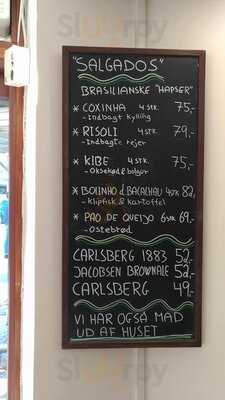 "SALGADOS"
BRASILIANSKE "HAPSER"
* COXINHA 4 STK 75,-
- Indbagt Kylling
* RISOLI 4 STK. 79,-
- Indbagte rejer
* KIBE 4 STK 75,-
- Oksekød & bulgor
* BOLINHO d. BACALHAU 4 STK 82,-
- Klipfisk & kartoffel
* PAO DE QUEIJO 6 STK 69,-
- Ostebrød
CARLSBERG 1883 52,-
JACOBSEN BROWNALE 52,-
CARLSBERG 49,-
VI HAR OGSÅ MAD
UD AF HUSET
Sluurpy